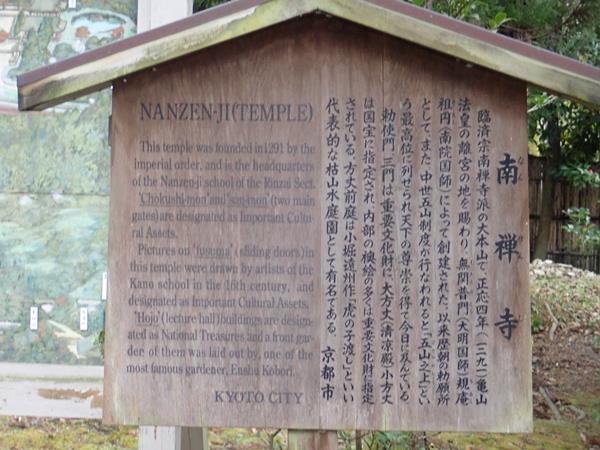 NANZEN-JI(TEMPLE)
This temple was founded in 1291 by the
imperial order, and is the headquarters
of the Nanzen-ji school of the Rinzai Sect.
'Chokushi-mon' and 'san-mon' (two main
gates) are designated as Important Cultu-
ral Assets.
Pictures on 'fusuma' (sliding doors) in
this temple were drawn by artists of the
Kano school in the 16th century, and
designated as Important Cultural Assets.
'Hojo' (lecture hall) buildings are design-
ated as National Treasures and a front gar-
der of them was laid out by, one of the
most famous gardener, Enshu Kobori.
KYOTO CITY
南禅寺
なんぜんじ
臨済宗南禅寺派の大本山で、正応四年(一二九一)亀山
法皇の離宮の地を賜わり、無関普門(大明国師)、規庵
祖円(南院国師)によって創建された。以来歴朝の勅願所
として、また、中世五山制度が行なわれると「五山之上」とい
う最高位に列せられ天下の尊崇を得て今日に及んでいる。
勅使門、三門は重要文化財に、大方丈(清涼殿)、小方丈
は国宝に指定され、内部の襖絵の多くは重要文化財に指定
されている。方丈前庭は小堀遠州作「虎の子渡し」といい
代表的な枯山水庭園として有名である。
京都市